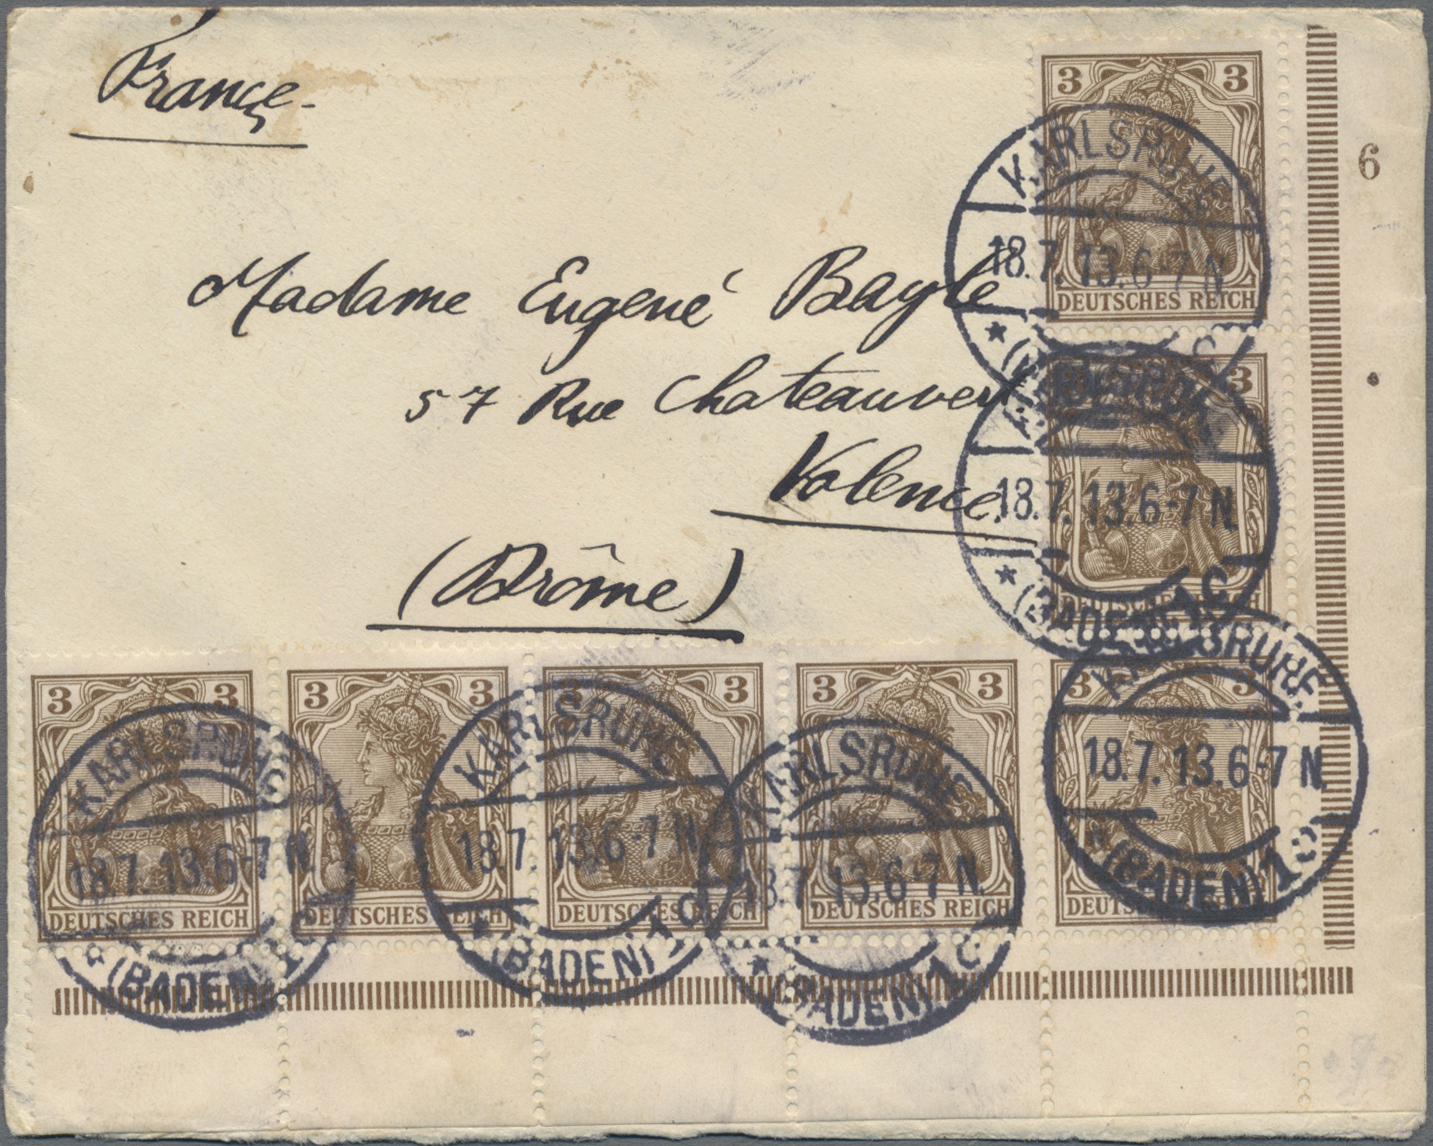 France-
Madame Eugené Bayle
57 Rue Chateauvert
Valence.
(Drôme)
3 3
DEUTSCHES REICH
6
KARLSRUHE
18.7.13.6-7N
* (BADEN) 1C
3 3
DEUTSCHES REICH
KARLSRUHE
18.7.13.6-7N
* (BADEN) 1C
3 3
DEUTSCHES REICH
KARLSRUHE
18.7.13.6-7N
* (BADEN) 1c
3 3
DEUTSCHES REICH
3 3
DEUTSCHES REICH
KARLSRUHE
18.7.13.6-7N
* (BADEN) 1c
3 3
DEUTSCHES REICH
KARLSRUHE
18.7.13.6-7N
* (BADEN) 1c
3 3
DEUTSCHES REICH
KARLSRUHE
18.7.13.6-7N
* (BADEN) 1c